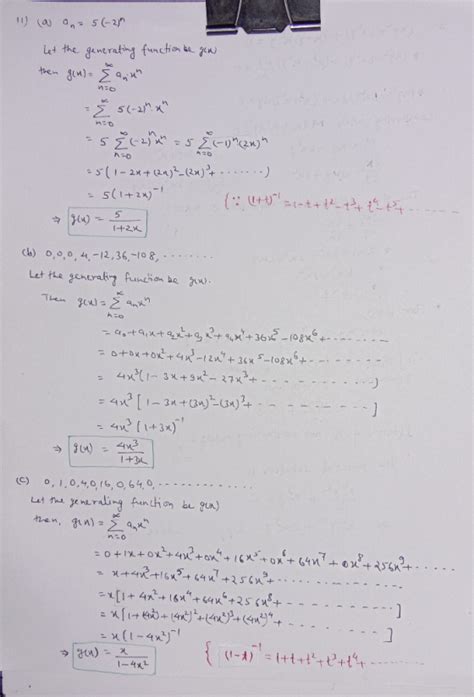 11) (a) aₙ = 5(-2)ⁿ
Let the generating function be g(x)
then g(x) = ∞Σn=0 aₙxⁿ
= ∞Σn=0 5(-2)ⁿ·xⁿ
= 5 ∞Σn=0 (-2)ⁿxⁿ = 5 ∞Σn=0 (-1)ⁿ(2x)ⁿ
= 5(1 - 2x + (2x)² - (2x)³ + .......)
= 5(1 + 2x)⁻¹ {∵ (1+t)⁻¹ = 1 - t + t² - t³ + t⁴ - t⁵ + ......
⇒ g(x) = 5/(1+2x)
(b) 0,0,0,4,-12,36,-108, .......
Let the generating function be g(x).
Then g(x) = ∞Σn=0 aₙxⁿ
= a₀ + a₁x + a₂x² + a₃x³ + a₄x⁴ + 36x⁵ - 108x⁶ + .......
= 0 + 0x + 0x² + 4x³ - 12x⁴ + 36x⁵ - 108x⁶ + .......
= 4x³(1 - 3x + 9x² - 27x³ + .......)
= 4x³[1 - 3x + (3x)² - (3x)³ + .......]
= 4x³[1 + 3x)⁻¹
⇒ g(x) = 4x³/(1+3x)
(c) 0,1,0,4,0,16,0,64,0, .......
Let the generating function be g(x)
then, g(x) = ∞Σn=0 aₙxⁿ
= 0 + 1x + 0x² + 4x³ + 0x⁴ + 16x⁵ + 0x⁶ + 64x⁷ + 0x⁸ + 256x⁹ + .......
= x + 4x³ + 16x⁵ + 64x⁷ + 256x⁹ + .......
= x[1 + 4x² + 16x⁴ + 64x⁶ + 256x⁸ + .......]
= x[1 + (4x²) + (4x²)² + (4x²)³ + (4x²)⁴ + .......]
= x(1 - 4x²)⁻¹
⇒ g(x) = x/(1-4x²) {(1-t)⁻¹ = 1 + t + t² + t³ + t⁴ + .......